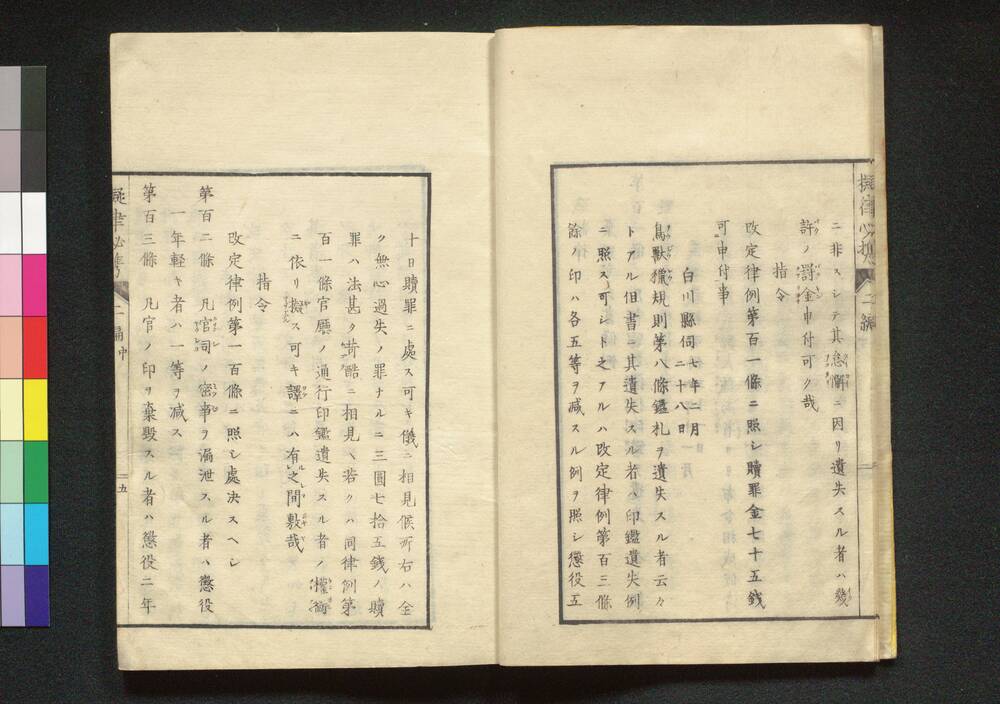 ニ非スシテ其怠慢ニ因リ遺失スル者ハ幾
許ノ罰金申付可ク哉
指令
改定律例第百一條ニ照シ贖罪金七十五錢
可申付事
白川縣伺七年二月二十八日
鳥獸獵規則第八條鑑札ヲ遺失スル者云々
トアル但書ニ其遺失スル者ハ印鑑遺失例
ニ照ス可シト之アルハ改定律例第百三條
餘ノ印ハ各五等ヲ減スル例ヲ照シ懲役五
十日贖罪ニ處ス可キ儀ニ相見候所右ハ全
ク無心過失ノ罪ナルニ三圓七拾五錢ノ贖
罪ハ法甚タ苛酷ニ相見ヘ若クハ同律例第
百一條官廳ノ通行印鑑遺失スル者ノ權衡
ニ依リ擬ス可キ譯ニハ有之間敷哉
指令
改定律例第一百條ニ照シ處決スヘシ
第百二條 凡官司ノ密事ヲ漏泄スル者ハ懲役
一年輕キ者ハ一等ヲ减ス
第百三條 凡官ノ印ヲ棄毀スル者ハ懲役二年
二編
五